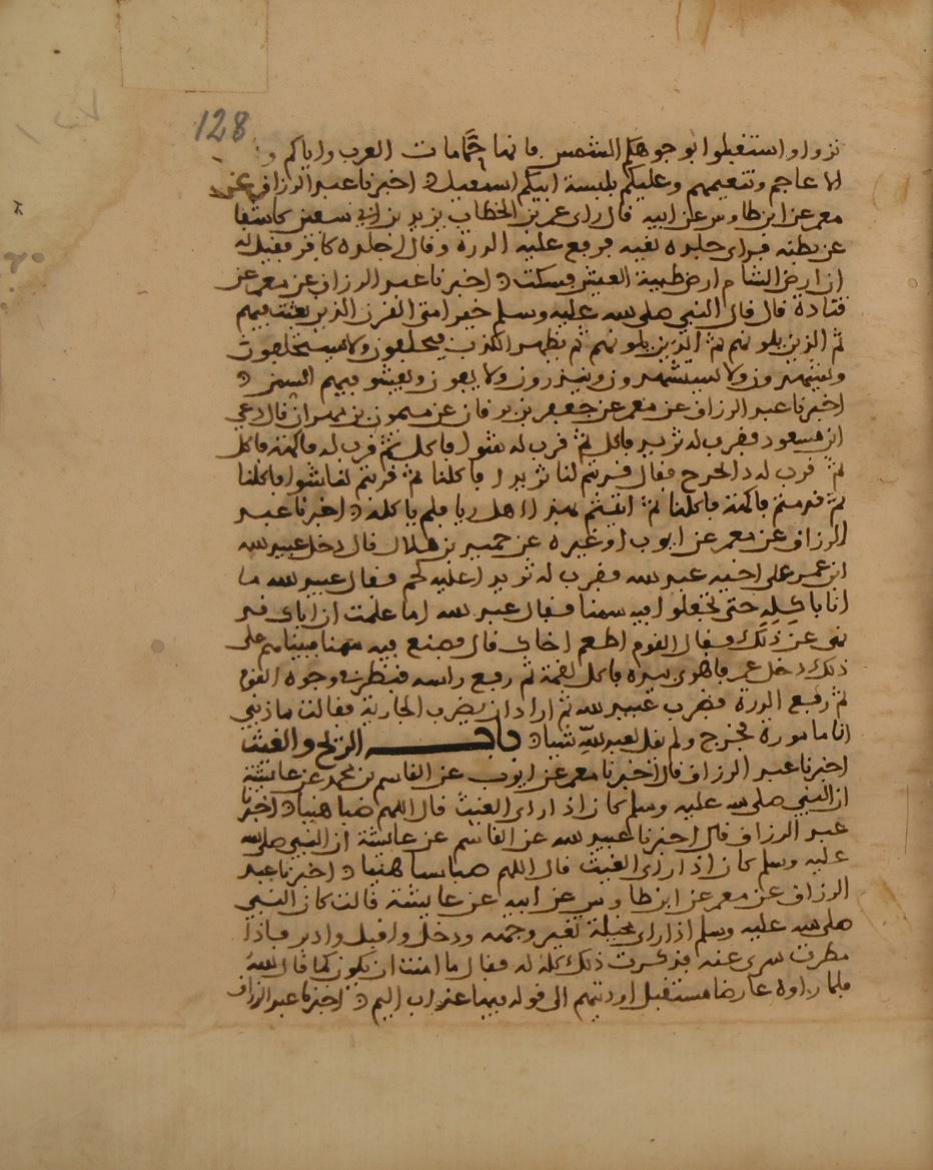 128
نزوا واستقبلوا بوجوهكم الشمس فانها حمامات العرب واياكم و
الاعاجم وتنعيمهم وعليكم بلبسة ابيكم اسمعيل اخبرنا عبد الرزاق عن
معمر عن ابن طاوس عن ابيه قال راى عمر بن الخطاب يزيد بن ابي سفين كاشفا
عن بطنه فراى جلدة نقية فرفع عليه الدرة وقال اجلدة كافر فقيل له
ان ارض الشام ارض طيبة العيش فسكت اخبرنا عبد الرزاق عن معمر عن
قتادة قال قال النبي صلى الله عليه وسلم خير امتي القرن الذين بعثت فيهم
ثم الذين يلونهم ثم الذين يلونهم ثم يظهر الكذب فيحلفون ولا يستحلفون
ويشهدون ولا يستشهدون وينذرون ولا يفون ويفشو فيهم السمن
اخبرنا عبد الرزاق عن معمر عن جعفر بن برقان عن ميمون بن مهران قال دعي
ابن مسعود فقرب له ثريد فاكل ثم قرب له شوا فاكل ثم قرب له فاكهة فاكل
ثم قرب له فقال قربتم لنا ثريدا فاكلنا ثم قربتم لنا شوا فاكلنا
ثم قربتم فاكهة فاكلنا ثم اتيتم بهذا اهل ريا فلم ياكله اخبرنا عبد
الرزاق عن معمر عن ايوب او غيره عن حميد بن هلال قال دخل عبيد الله
ابن عمر على اخيه عبد الله فقرب له ثريدا عليه لحم فقال عبيد الله ما
انا باكله حتى تجعلوا فيه سمنا فقال عبد الله اما علمت ان اباك قد
نهى عن ذلك فقال القوم اطعم اخاك قال فصنع فيه سمنا فبينا هم على
ذلك دخل عمر فاهوى بيده فاكل لقمة ثم رفع راسه فنظر في وجوه القوم
ثم رفع الدرة فضرب عبيد الله ثم اراد ان يضرب الجارية فقالت ما ذنبي
انا مامورة فخرج ولم يقل لعبد الله شيا باب الريح والغيث
اخبرنا عبد الرزاق قال اخبرنا معمر عن ايوب عن القاسم بن محمد عن عائشة
ان النبي صلى الله عليه وسلم كان اذا راى الغيث قال اللهم صبا هنيا اخبرنا
عبد الرزاق قال اخبرنا عبيد الله عن القاسم عن عائشة ان النبي صلى الله
عليه وسلم كان اذا راى الغيث قال اللهم هنيا اخبرنا عبد
الرزاق عن معمر عن ابن طاوس عن ابيه عن عايشة قالت كان النبي
صلى الله عليه وسلم اذا راى مخيلة تغير وجهه ودخل واقبل وادبر فاذا
مطرت سري عنه فذكرت ذلك كله له فقال ما امنت ان يكون كما قال الله
فلما راوه عارضا مستقبل اوديتهم الى قوله فيها عذاب اليم اخبرنا عبد الرزاق